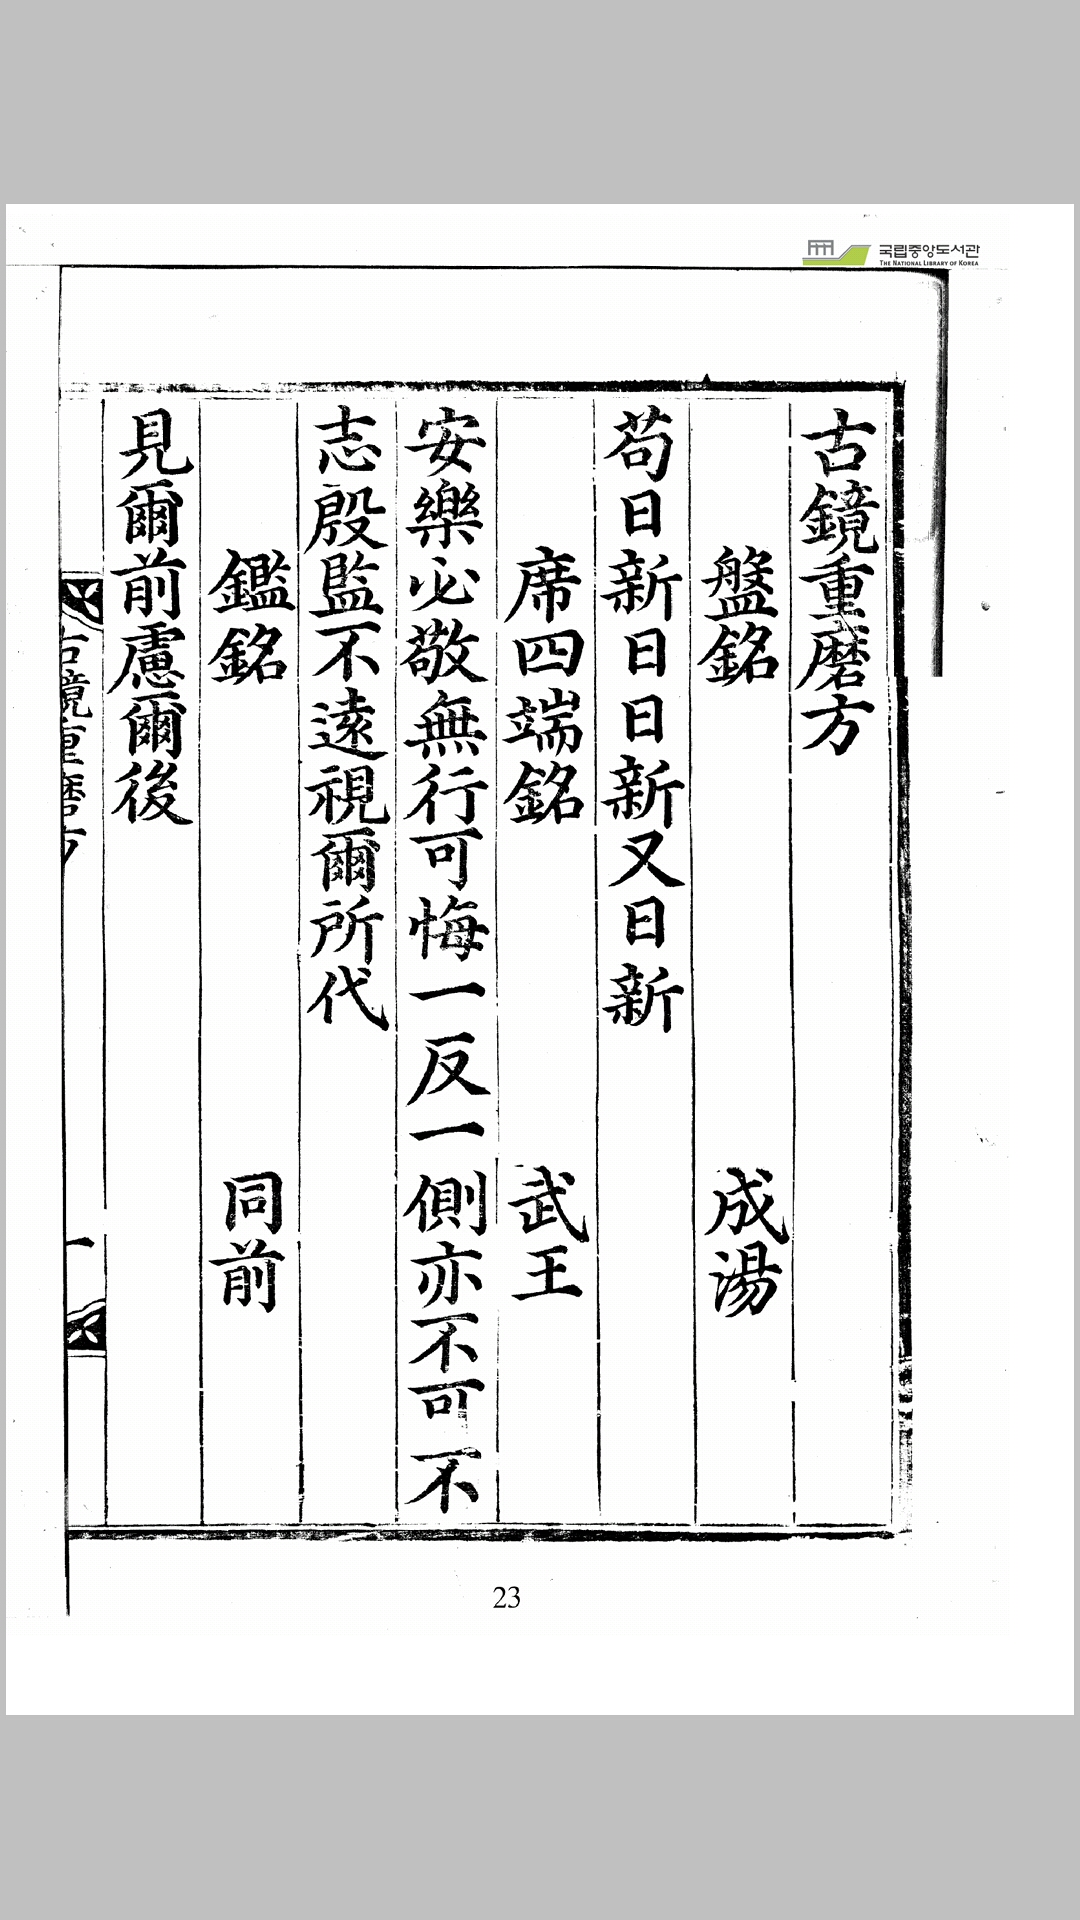 국립중앙도서관
THE NATIONAL LIBRARY OF KOREA
古鏡重磨方
盤銘 成湯
苟日新日日新又日新
席四端銘 武王
安樂必敬無行可悔一反一側亦不可不
志殷監不遠視爾所代
鑑銘 同前
見爾前慮爾後
古鏡重磨方 一
23